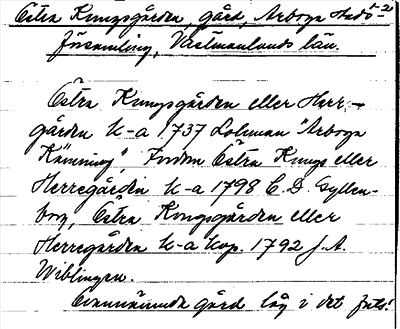 Östra Kungsgården, gård, Arboga stads-
församling, Västmanlands län.
Östra Kungsgården eller Herr-
gården k-a 1737 Lohman "Arboga
Känning", Fordom Östra Kungs eller
Herregården k-a 1798 C. D. Gyllen-
borg, Östra Kongsgården eller
Herregården k-a kop. 1792 J. A.
Wiblingen.
gård låg i det